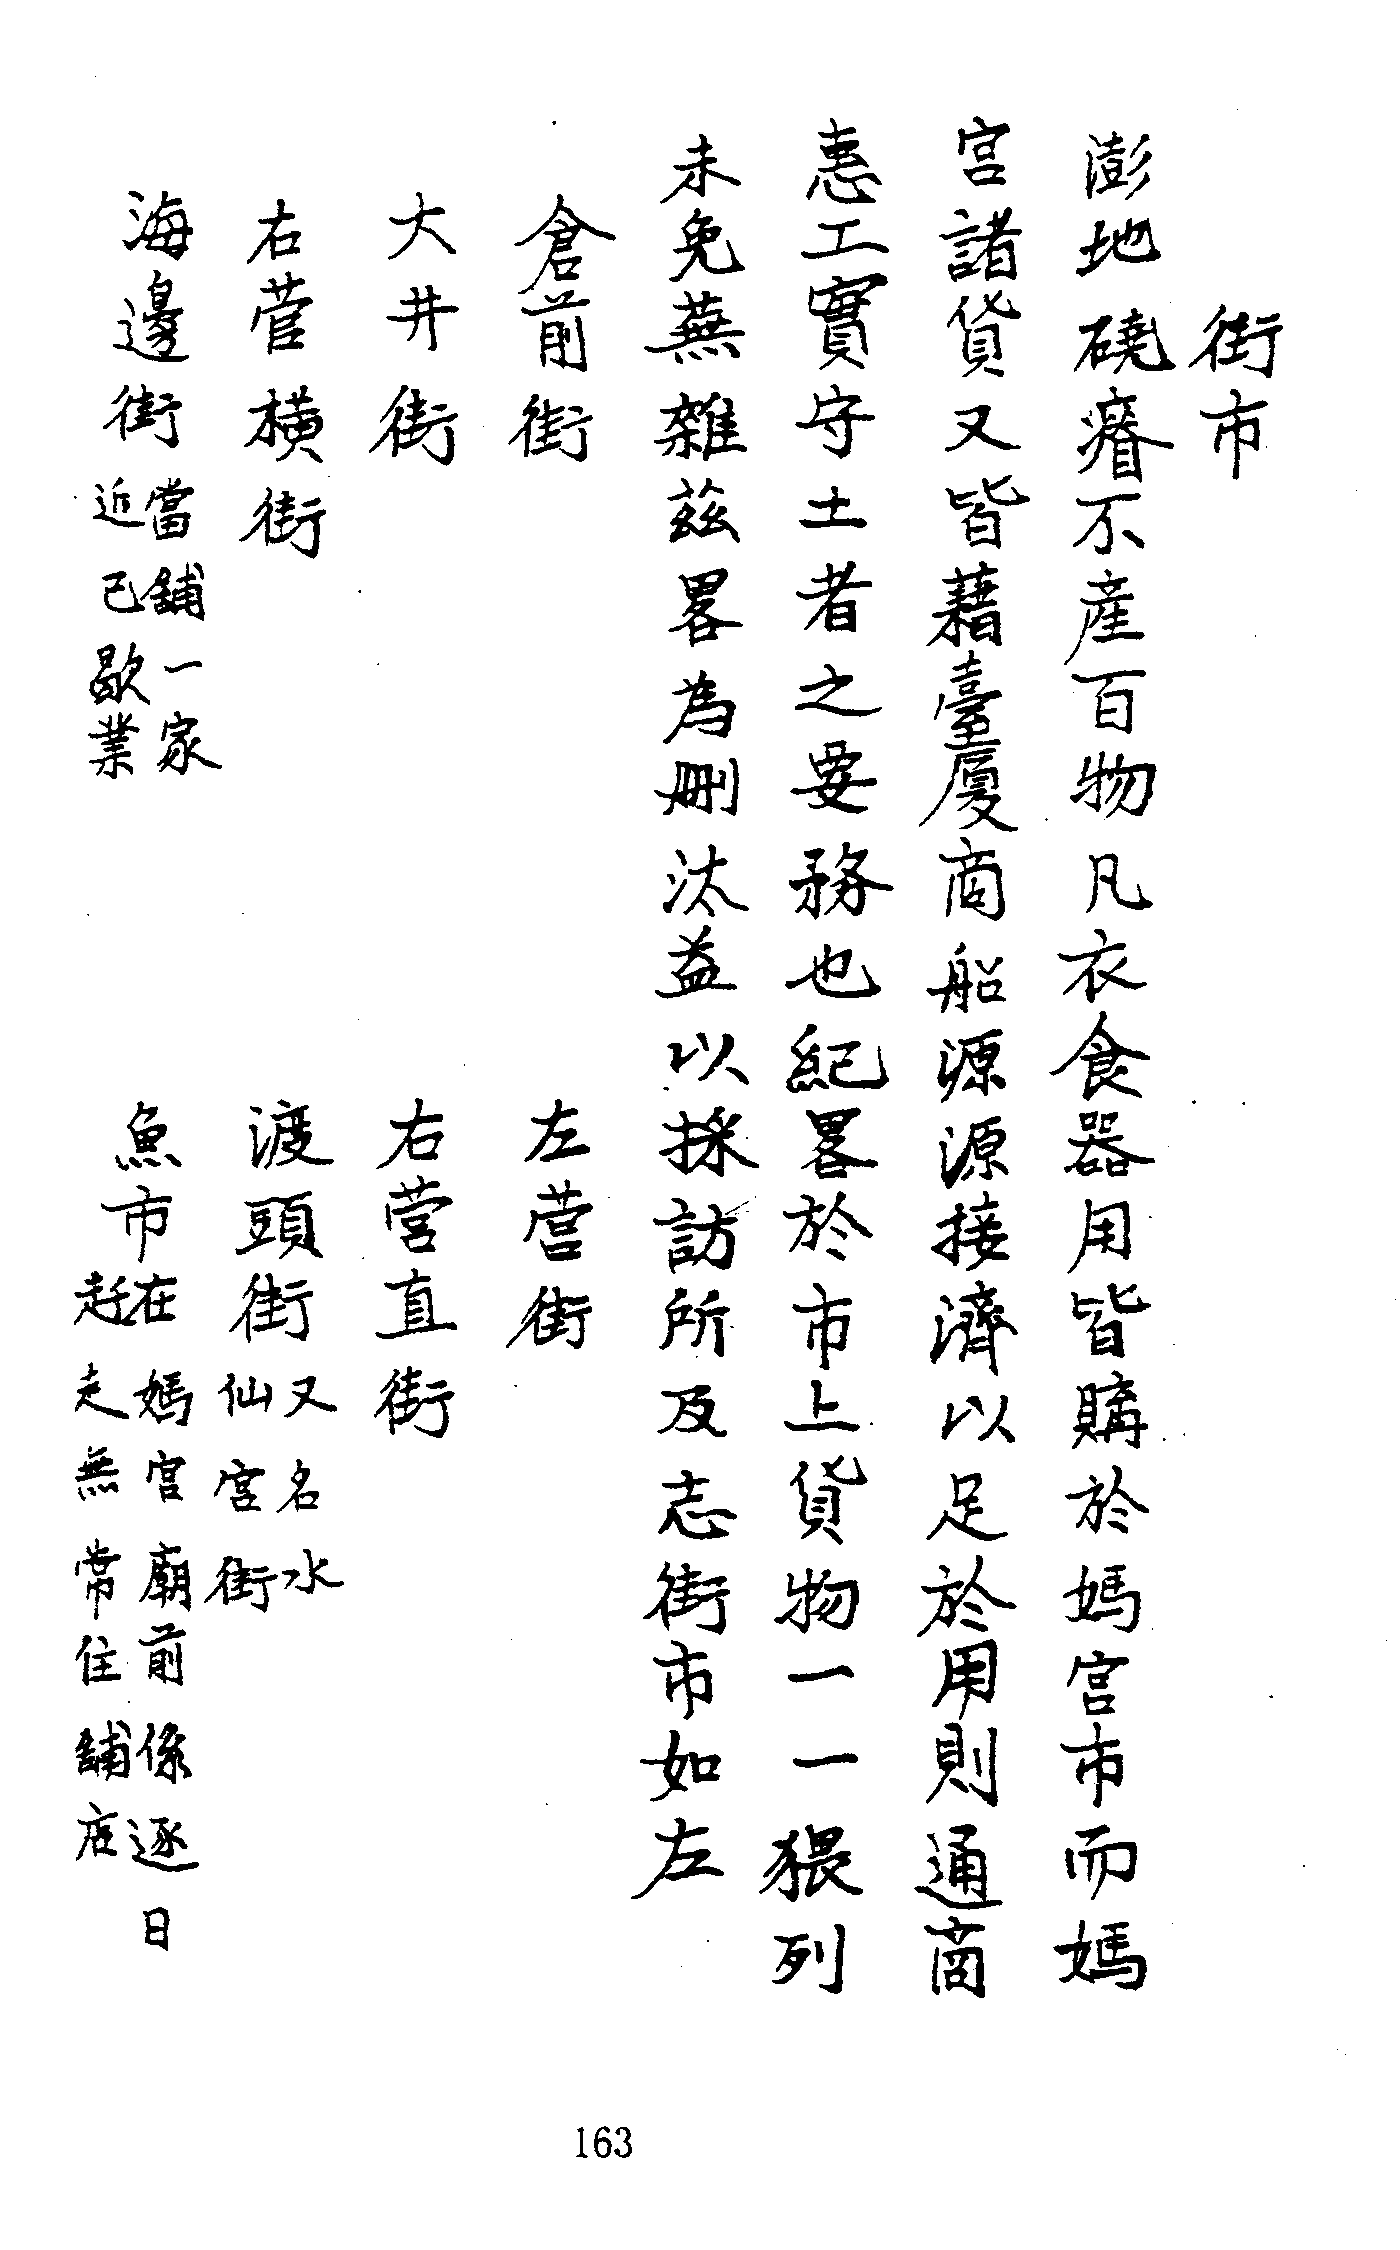 街市
澎地磽瘠不產百物凡衣食器用皆購於媽宮市而媽
宮諸貨又皆藉臺廈商船源源接濟以足於用則通商
惠工實守土者之要務也紀畧於市上貨物一一猥列
未免蕪雜茲畧為刪汰益以採訪所及志街市如左
倉前街
左營街
大井街
右營直街
右營橫街
渡頭街又名水
仙宮街
海邊街當舖一家
近已歇業
魚市在媽宮廟前係逐日
赶走無常住舖店
163